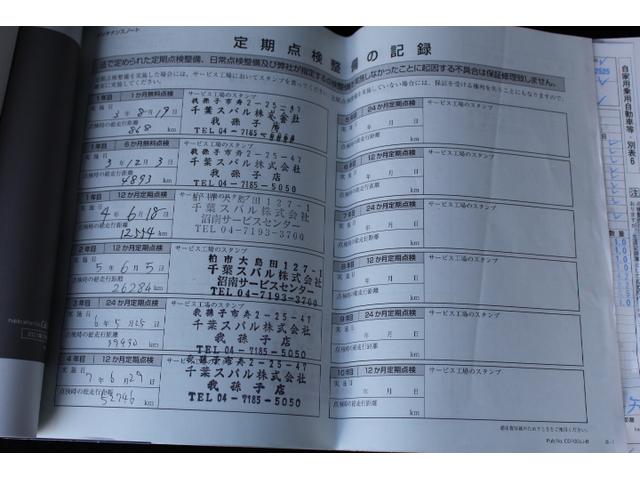 メンテナンスノート
定期点検整備の記録
法で定められた定期点検整備、日常点検整備及び弊社が指定する点検整備を実施しなかったことに起因する不具合は保証修理致しません。
1年目 1か月無料点検
サービス工場のスタンプ
実施日 3年 8月 19日
点検時の総走行距離
868 km
我孫子市寿2-25-47
千葉スバル株式会社
我孫子店
TEL 04-7185-5050
1年目 6か月無料点検
サービス工場のスタンプ
実施日 3年 12月 3日
点検時の総走行距離
4893 km
我孫子市寿2-25-47
千葉スバル株式会社
我孫子店
TEL 04-7185-5050
1年目 12か月定期点検
実施日 4年 6月 18日
点検時の総走行距離
km
柏市大島田127-1
千葉スバル株式会社
沼南サービスセンター
TEL 04-7193-3700
2年目 12か月定期点検
サービス工場のスタンプ
実施日 5年 6月 5日
点検時の総走行距離
26284 km
柏市大島田127-1
千葉スバル株式会社
沼南サービスセンター
TEL 04-7193-3700
3年目 24か月定期点検
サービス工場のスタンプ
実施日 6年 5月 25日
点検時の総走行距離
km
我孫子市寿2-25-47
千葉スバル株式会社
我孫子店
TEL 04-7185-5050
4年目 12か月定期点検
実施日 7年 6月 29日
点検時の総走行距離
52746 km
我孫子市寿2-25-47
千葉スバル株式会社
我孫子店
TEL 04-7185-5050
5年目 24か月定期点検
サービス工場のスタンプ
実施日 年 月 日
点検時の総走行距離
km
6年目 12か月定期点検
サービス工場のスタンプ
実施日 年 月 日
点検時の総走行距離
km
7年目 24か月定期点検
サービス工場のスタンプ
実施日 年 月 日
点検時の総走行距離
km
8年目 12か月定期点検
サービス工場のスタンプ
実施日 年 月 日
点検時の総走行距離
km
9年目 24か月定期点検
サービス工場のスタンプ
実施日 年 月 日
点検時の総走行距離
km
10年目 12か月定期点検
サービス工場のスタンプ
実施日 年 月 日
点検時の総走行距離
km
自家用乗用自動車等 別表6